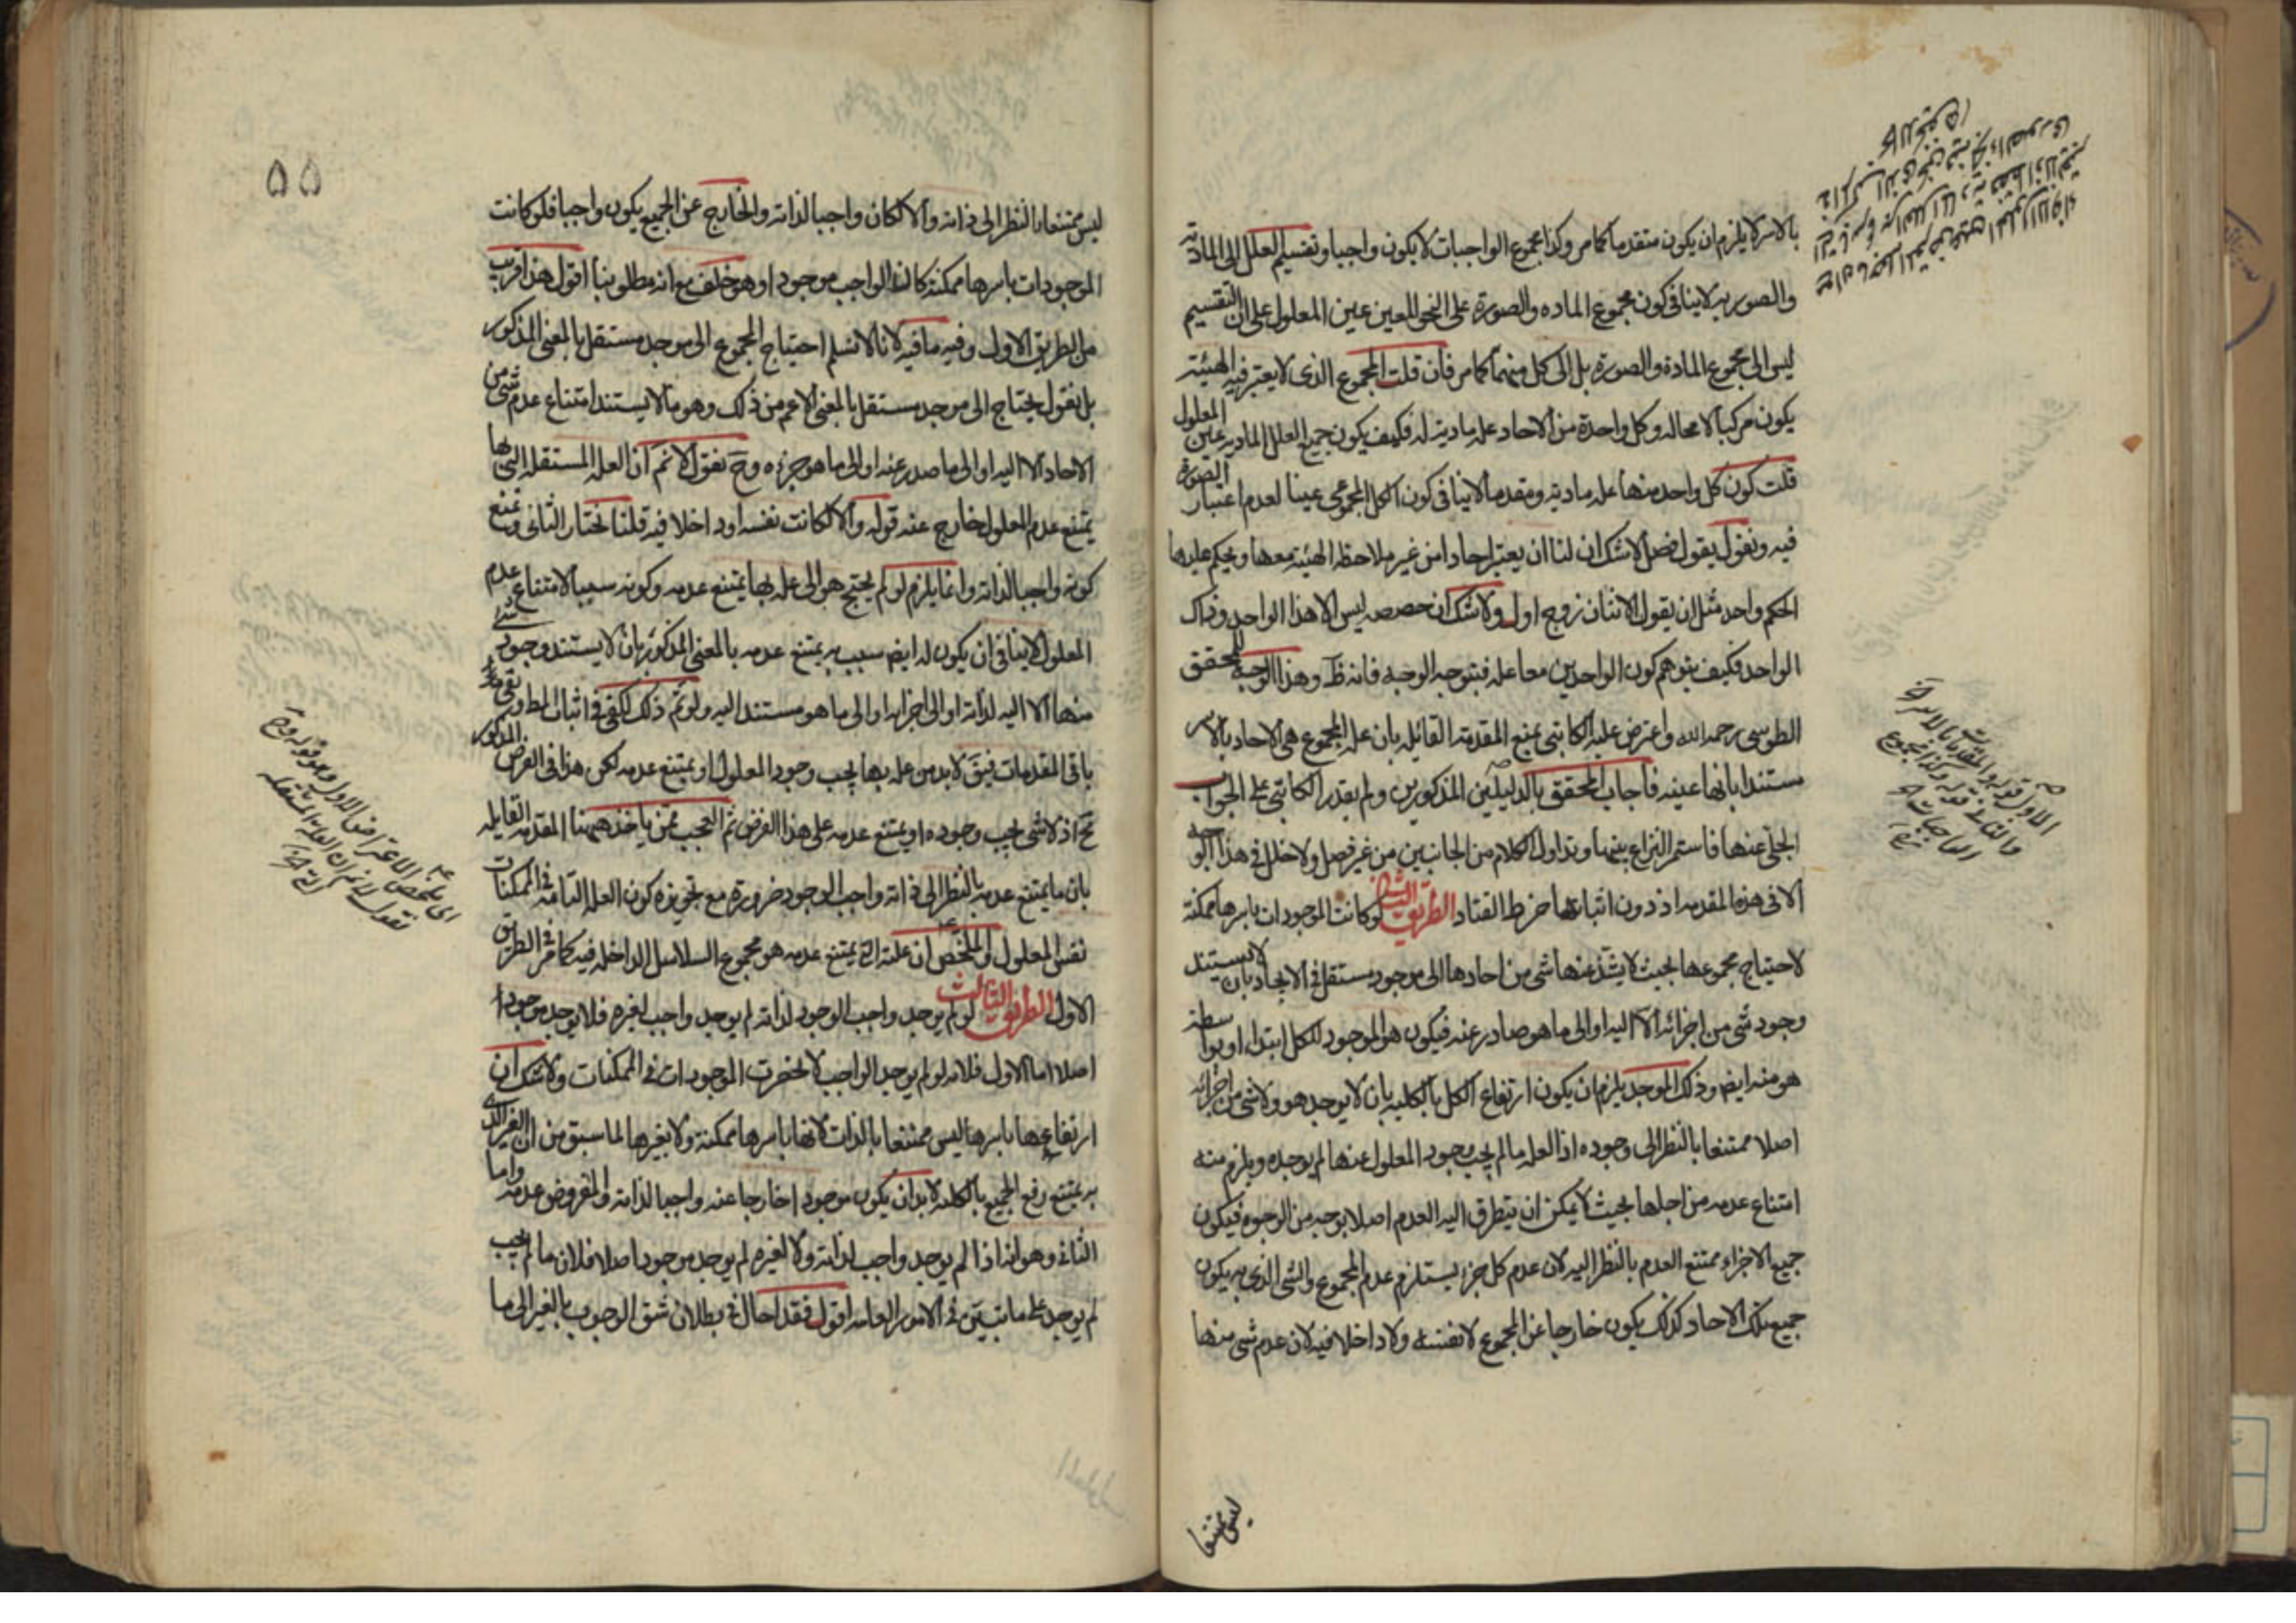 بالاسر لا يلزم ان يكون متقدما كما مر وكذا مجموع الواجبات لا يكون واجبا وتقسيم العلل الى المادية
والصورية لا ينافى كون مجموع الماده والصورة على النحو المعين عين المعلول على ان التقسيم
ليس الى مجموع المادة والصورة بل الى كل منهما كما مر فان قلت المجموع الذى لا يعتبر فيه الهيئة
يكون مركبا لا محاله وكل واحدة من الاحاد علة مادية له فكيف يكون جميع العلل المادية عين المعلول
قلت كون كل واحد منها علة مادية ومتقدما لا ينافى كون الكل المجموعى عينا لعدم اعتبار الصورة
فيه ونقول بقول فصل لا شك ان لنا ان يعتبر احادا من غير ملاحظة الهيئة معها ويحكم عليها
الحكم واحد مثل ان يقول الاثنان زوج اول ولا شك ان حصصه ليس الا هذا الواحد وذاك
الواحد فكيف يتوهم كون الواحدين معا علة فبتوجه الوجبه فانه ظ وهذا الوجه للمحقق
الطوسى رحمه الله واعترض عليه الكاتبى بمنع المقدمة القائله بان علة المجموع هى الاحاد بالاسر
مستندا بانها عينه فاجاب المحقق بالدليلين المذكورين ولم يقدر الكاتبى على الجواب
الجلى عنها فاستمر النزاع بينهما وتداول الكلام من الجانبين من غير فصل ولا خلل فى هذا الوجه
الا فى هذه المقدمه اذ دون اثباتها خرط القتاد الطريق الثانى لو كانت الموجودات باسرها ممكنة
لاحتياج مجموعها بحيث لا يشذ عنها شى من احادها الى موجود مستقل فى الايجاد بان لا يستند
وجود شى من اجزائه الا اليه او الى ما هو صادر عنه فيكون هو الموجود للكل ابتداء او بواسطة
هو منه ايضا وذلك الموجد يلزم ان يكون ارتفاع الكل بالكليه بان لا يوجد هو ولا شى من اجزائه
اصلا ممتنعا بالنظر الى وجوده اذ العلة ما لم يجب وجود المعلول عنها لم يوجده ويلزم منه
امتناع عدمه من اجلها بحيث لا يمكن ان يتطرق اليه العدم اصلا بوجه من الوجوه فيكون
جميع الاجزاء ممتنع العدم بالنظر اليه لان عدم كل جزء يستلزم عدم المجموع والشى الذى به يكون
جميع تلك الاحاد كذلك يكون خارجا عن المجموع لا نفسه ولا داخلا فيه لان عدم شى منها
ليس ممتنعا
الاول قوله والمقدمات
والثانية قوله وكذا مجموع
الواجبات
٥٥
ليس ممتنعا بالنظر الى ذاته والا لكان واجبا لذاته والخارج عن الجميع يكون واجبا فلو كانت
الموجودات باسرها ممكنة كان الواجب موجودا وهو خلف مع انه مطلوبنا اقول هذا قريب
من الطريق الاول وفيه ما فيه لانا لا نسلم احتياج المجموع الى موجد مستقل بالمعنى المذكور
بل نقول يحتاج الى موجد مستقل بالمعنى الاعم من ذلك وهو ما لا يستند امتناع عدم شى من
الاحاد الا اليه او الى ما صدر عنه او الى ما هو جزءه وح نقول لا نم ان العلة المستقله التى بها
يمتنع عدم المعلول خارج عنه قوله والا لكانت نفسه او داخلا فيه قلنا نختار الثانى ونمنع
كونه واجبا لذاته وانما يلزم لو لم يحتج هو الى علة بها يمتنع عدمه وكونه سببا لامتناع عدم
المعلول لا ينافى ان يكون له ايض سبب به يمتنع عدمه بالمعنى المذكور بان لا يستند وجود شى
منها الا اليه لذاته او الى اجزائه او الى ما هو مستند اليه ولو تم ذلك لكفى فى اثبات المط
باقى المقدمات فيبق لا بد من علة بها يجب وجود المعلول او يمتنع عدمه لكن هذا فى الفرض المذكور
مح اذ لا شى يجب وجوده او يمتنع عدمه على هذا الفرض ثم التعجب ممن ياخذ ههنا المقدمه القايله
بان ما يمتنع عدمه بالنظر الى ذاته واجب الوجود ضرورة مع تجويزه كون العلة التامة فى الممكنات
نفس المعلول والملخص ان علته التى يمتنع عدمه هو مجموع السلاسل الداخله فيه كما مر فى الطريق
الاول الطريق الثالث لو لم يوجد واجب الوجود لذاته لم يوجد واجب لغيره فلا يوجد موجودا
اصلا اما الاول فلانه لو لم يوجد الواجب لانحصرت الموجودات فى الممكنات ولا شك ان
ارتفاعها باسرها ليس ممتنعا بالذات لانها باسرها ممكنة ولا بغيرها لما سبق من ان الغير الذى
به يمتنع رفع الجميع بالكليه لا بد ان يكون موجودا خارجا عنه واجبا لذاته والمفروض عدمه واما
الثانى وهو انه اذا لم يوجد واجب لذاته ولا لغيره لم يوجد موجود اصلا فلان ما لم يجب
لم يوجد على ما تبين فى الامور العامه اقول فقد احال فى بطلان شق الوجوب بالغير الى ما
اى ملخص الاعتراض الاول وهو قوله وح
نقول لا نم ان العلة المستقله